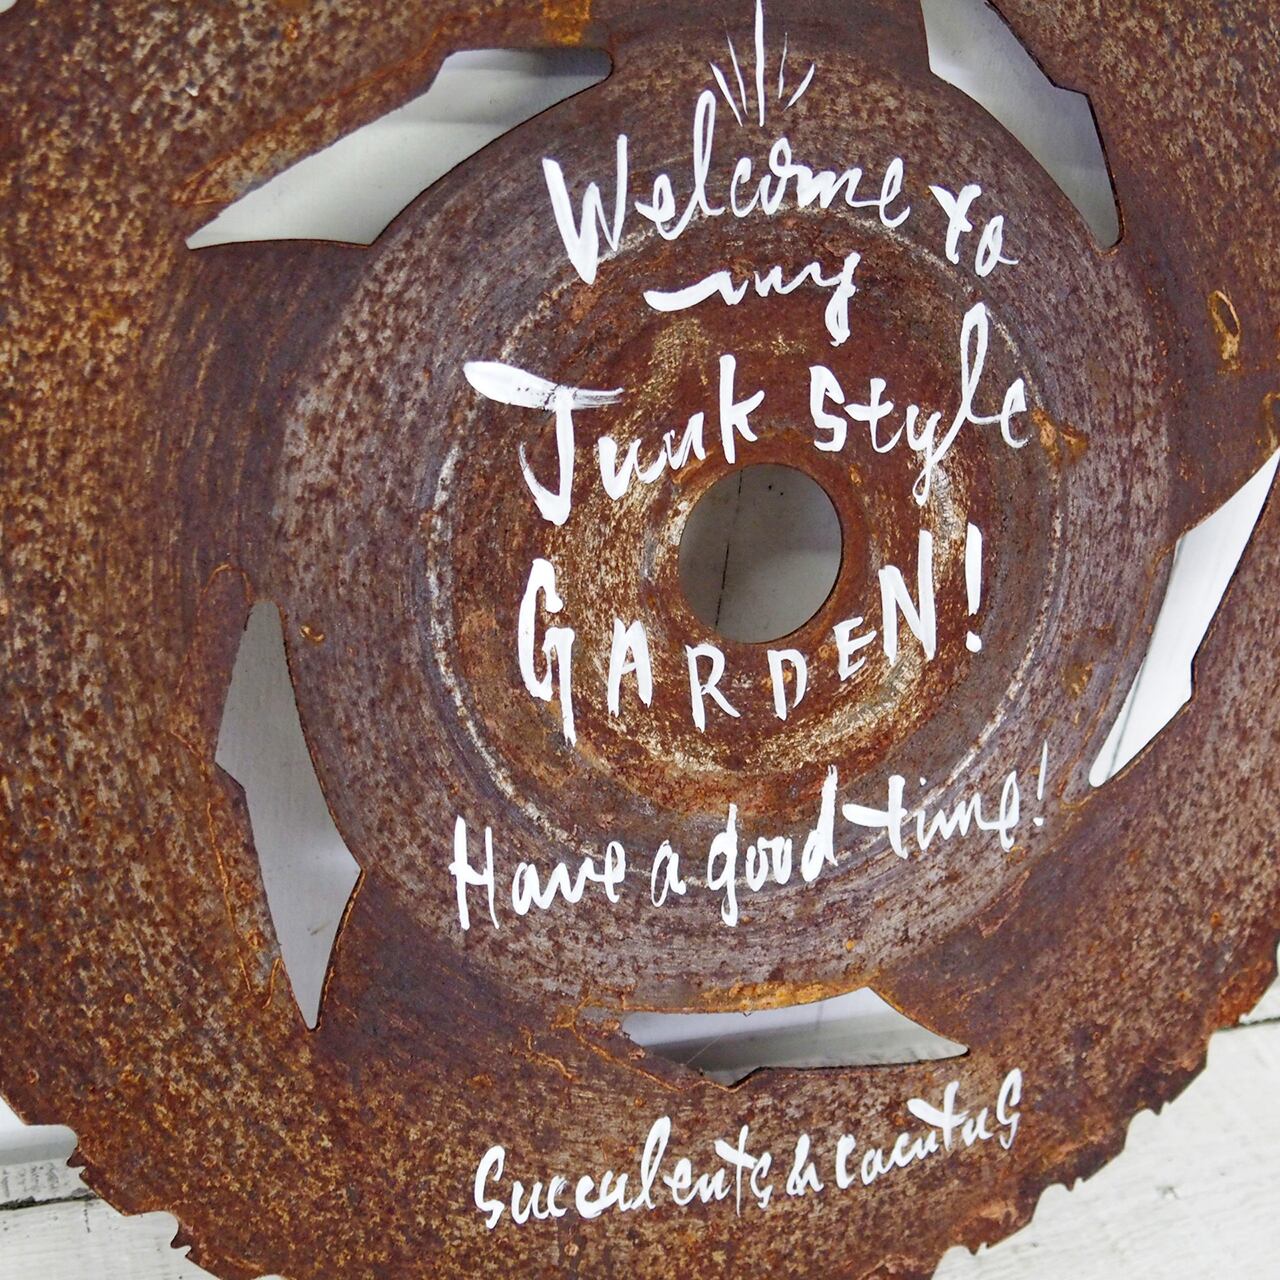 Welcome to
my
Junk Style
GARDEN!
Have a good time!
Succulents & cacutus